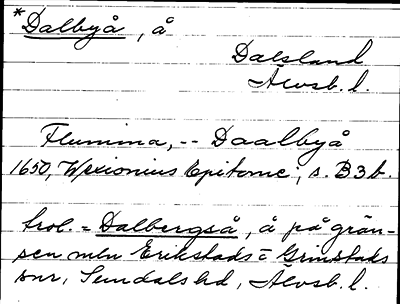 *Dalbyå, å
Dalsland
Älvsb. l.
Flumina, -- Daalbyå
1650, Wexionius Epitome, s. B3b.
trol. = Dalbergså, å på grän-
sen mln Erikstads o Grinstads
snr, Sundals hd, Älvsb. l.